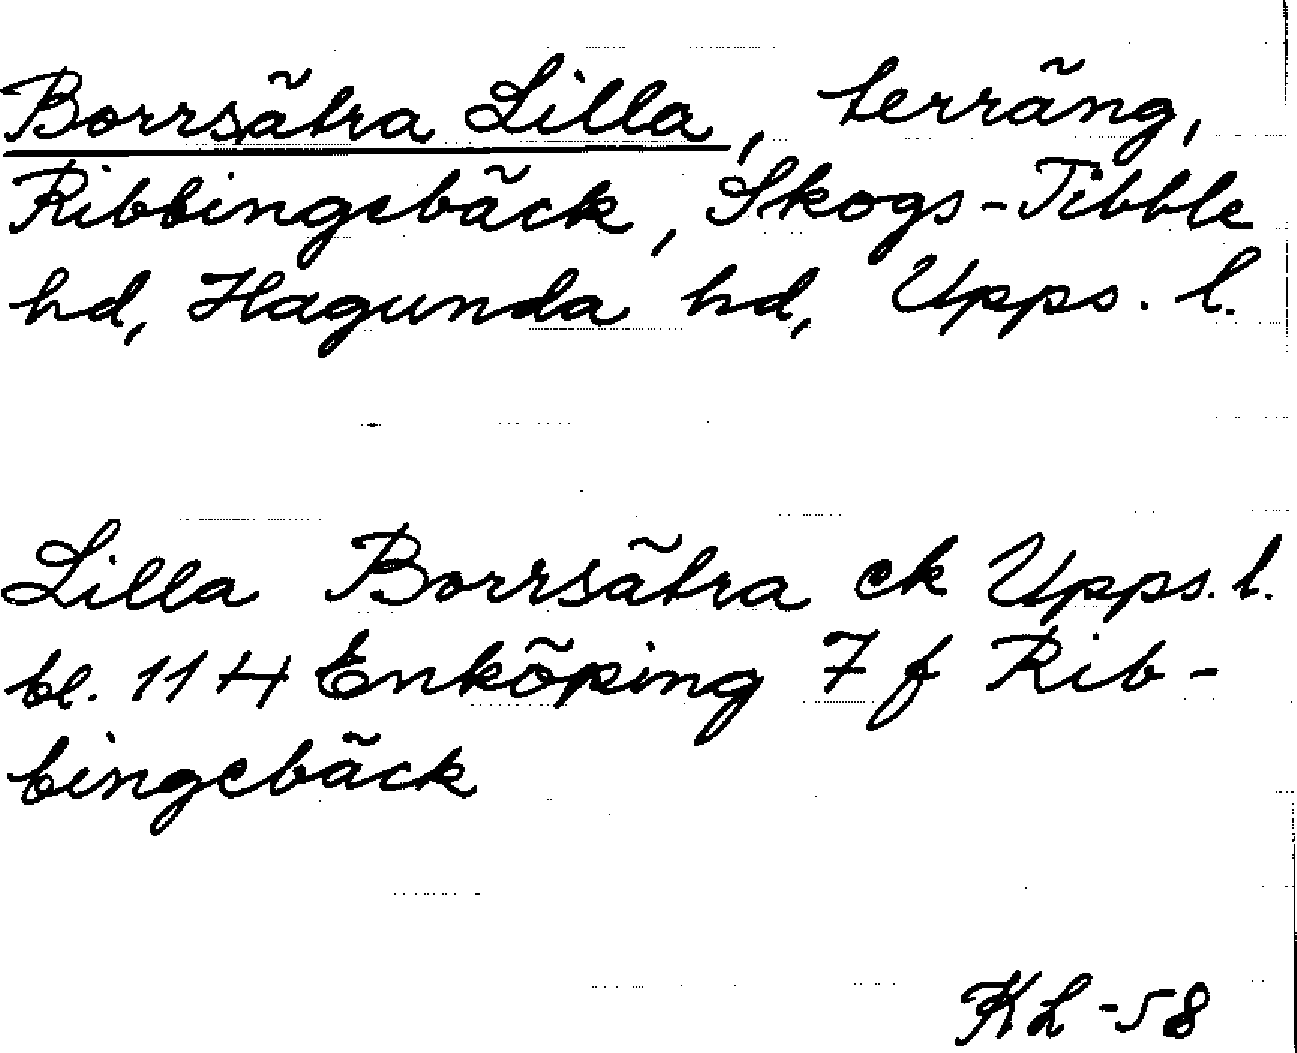 Borrsätra Lilla, terräng,
Ribbingebäck, Skogs-Tibble
hd, Hagunda hd, Upps. l.
Lilla Borrsätra ek Upps. l.
bl. 114 Enköping 7 f Rib-
bingebäck
KL -58